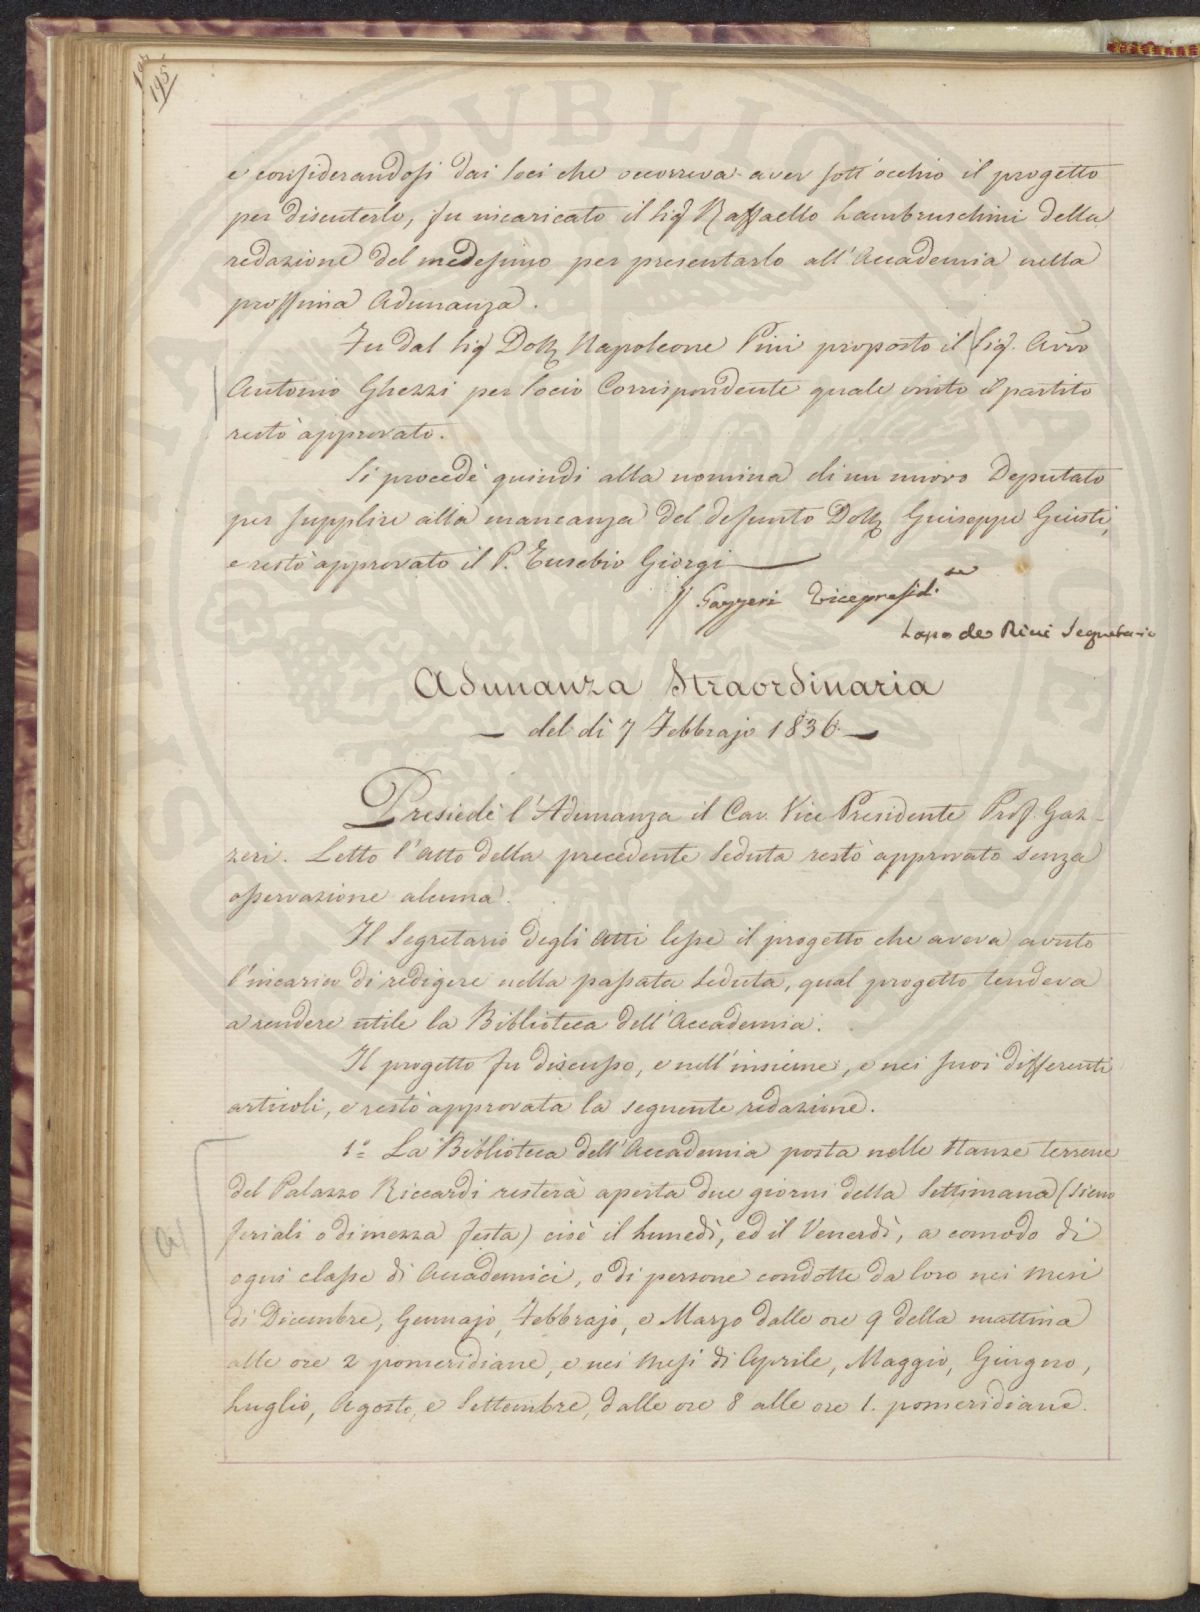 195
e considerandosi dai Soci che occorreva aver sott'occhio il progetto
per discuterlo, fu incaricato il Sig.r Raffaello Lambruschini della
redazione del medesimo per presentarlo all'Accademia nella
prossima Adunanza.
Fu dal Sig.r Dott. Napoleone Pini proposto il Sig. Avvo
Antonio Ghezzi per Socio Corrispondente quale vinto il partito
restò approvato.
Si procedè quindi alla nomina di un nuovo Deputato
per supplire alla mancanza del defunto Dott. Guiseppe Giusti,
e restò approvato il P. Eusebio Giorgi
Gazzeri Vicepresid.te
Lapo de Ricci Segretario
Adunanza Straordinaria
– del dì 7 Febbrajo 1836. –
Presiedè l'Adunanza il Cav. Vice Presidente Prof. Gaz-
zeri. Letto l'Atto della precedente Seduta restò approvato senza
osservazione alcuna.
Il Segretario degli Atti lesse il progetto che aveva avuto
l'incarico di redigere nella passata Seduta, qual progetto tendeva
a rendere utile la Biblioteca dell'Accademia.
Il progetto fu discusso, e nell'insieme, e nei suoi differenti
articoli, e restò approvata la seguente redazione.
1.o La Biblioteca dell'Accademia posta nelle Stanze terrene
del Palazzo Riccardi resterà aperta due giorni della Settimana (sieno
feriali o di mezza festa) cioè il Lunedì, ed il Venerdì, a comodo di
(a)
ogni classe di Accademici, o di persone condotte da loro nei Mesi
di Dicembre, Gennajo, Febbrajo, e Marzo dalle ore 9 della mattina
alle ore 2 pomeridiane, e nei Mesi di Aprile, Maggio, Giugno,
Luglio, Agosto, e Settembre, dalle ore 8 alle ore 1. pomeridiane.